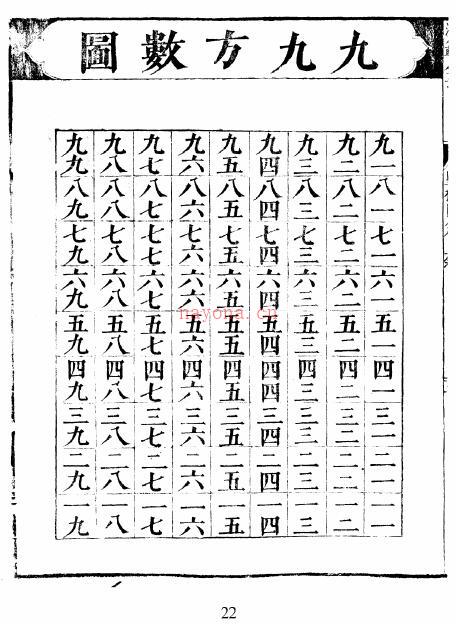 九九方數圖
九一八一七一六一五一四一三一二一一一
九二八二七二六二五二四二三二二二一二
九三八三七三六三五三四三三三二三一三
九四八四七四六四五四四四三四二四一四
九五八五七五六五五五四五三五二五一五
九六八六七六六六五六四六三六二六一六
九七八七七七六七五七四七三七二七一七
九八八八七八六八五八四八三八二八一八
九九八九七九六九五九四九三九二九一九
nayona.cn
22